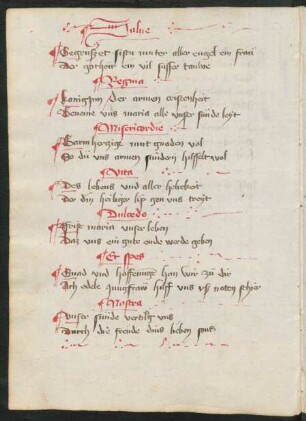 Salue
Gegrusset sistu muter aller engel ein frau
Der gotheit ein vil susser tauwe
Regina
Kanigin der armen cristenheit
Beneme uns maria alle unser sunde leyt
Misericordie
Barmhertzige mut gnaden vol
So du uns armen sundern hilffest wol
Vita
Des lebens und aller selikeit
Der din heiliger lip gen uns treyt
Dulcedo
maria unser leben
Daz uns ein gute ende werde geben
Et spes
Gnad und hoffenunge han wir zu dir
Ach edele Jungfraw hilff uns uss noten schir
Nostra
Unser sunde vertilg uns
Durch die freude dins lieben suns